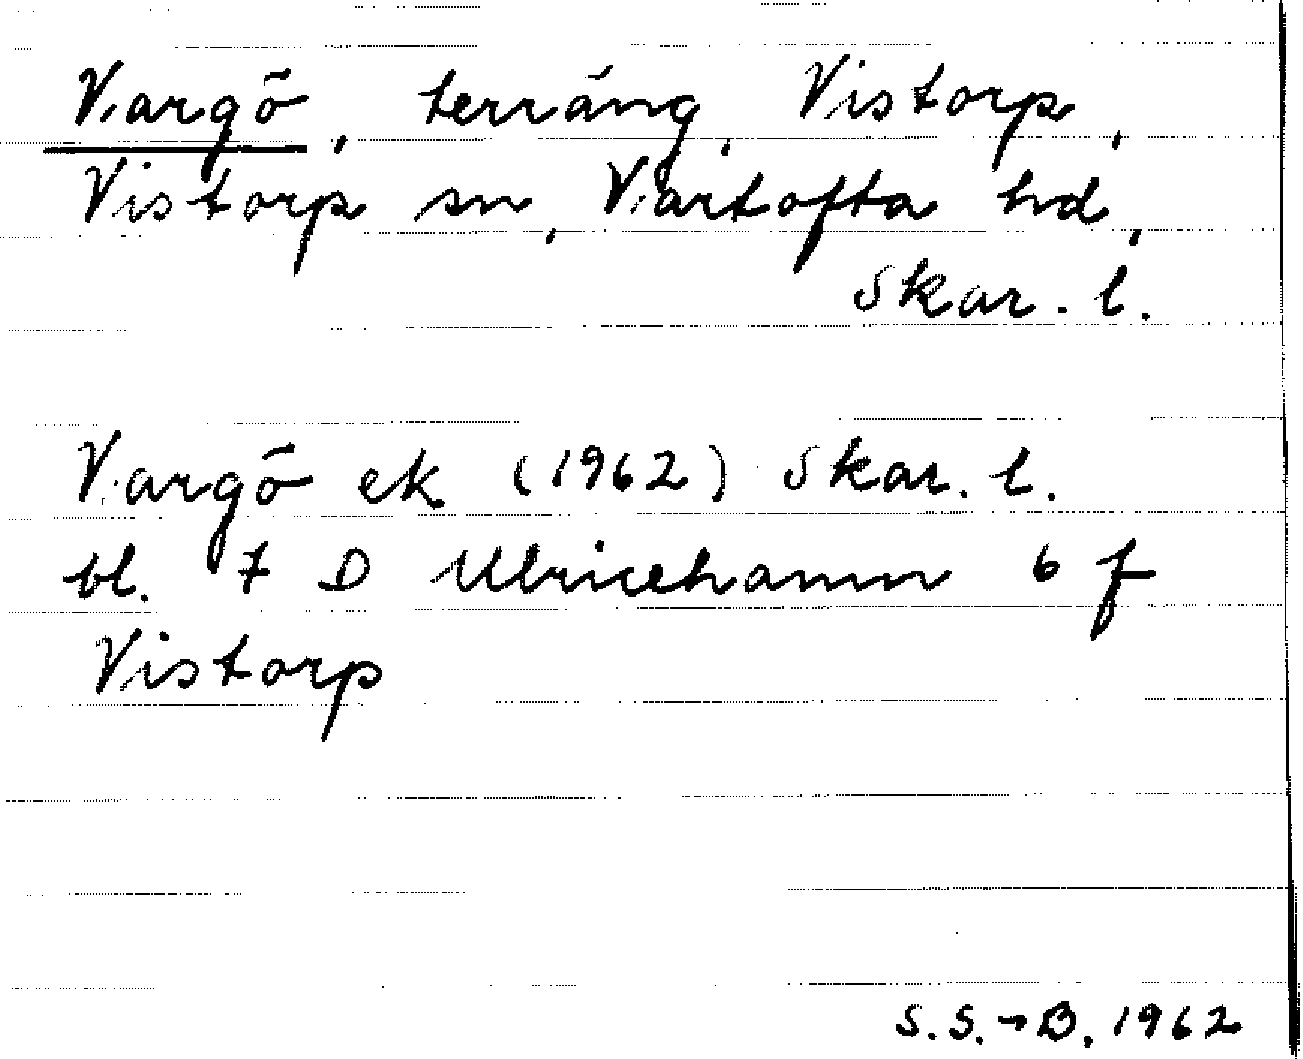 Vargö, terräng, Vistorp,
Vistorp sn, Vartofta hd,
Skar. l.
Vargö ek (1962) Skar. l.
bl. 7 D Ulricehamn 6 f
Vistorp
S.S.-B. 1962